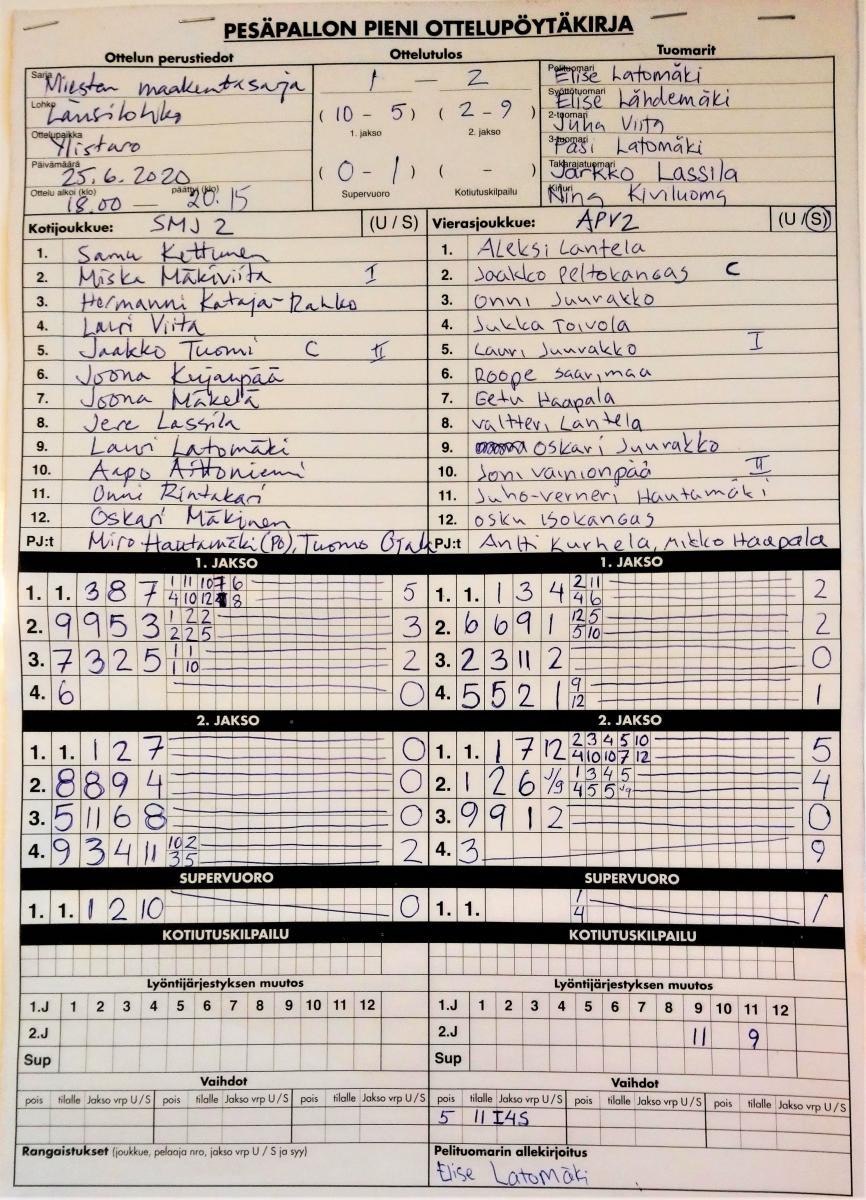 PESÄPALLON PIENI OTTELUPÖYTÄKIRJA
Ottelun perustiedot Ottelutulos Tuomarit
Sarja Miesten maakuntasarja
Lohko Länsilohko
Ottelupaikka Ylistaro
Päivämäärä 25.6.2020
Ottelu alkoi (klo) päättyi (klo)
18.00 — 20.15
1 — 2
(10 - 5) (2 - 9)
1. jakso 2. jakso
(0 - 1) ( - )
Supervuoro Kotiutuskilpailu
Pelituomari Elise Latomäki
Syöttötuomari Elise Lähdemäki
2-tuomari Juha Viita
3-tuomari Pasi Latomäki
Takarajatuomari Jarkko Lassila
Kirjuri Nina Kiviluoma
Kotijoukkue: SMJ 2 (U / S)
1. Samu Kettunen
2. Miska Mäkiviita I
3. Hermanni Kataja-Rahko
4. Lauri Viita
5. Jaakko Tuomi C II
6. Joona Kujanpää
7. Joona Mäkelä
8. Jere Lassila
9. Lauri Latomäki
10. Aapo Aittoniemi
11. Onni Rintakari
12. Oskari Mäkinen
PJ:t Miro Hautamäki (PO), Tuomo Ojala
Vierasjoukkue: APV2 (U / S)
1. Aleksi Lantela
2. Jaakko Peltokangas C
3. Onni Juurakko
4. Jukka Toivola
5. Lauri Juurakko I
6. Roope Saarimaa
7. Eetu Haapala
8. Valtteri Lantela
9. Oskari Juurakko
10. Joni Vainionpää II
11. Juho-Verneri Hautamäki
12. Osku Isokangas
PJ:t Antti Kurhela, Mikko Haapala
1. JAKSO
1. 1. 3 8 7 1 11 10 7 6 5
4 10 12 8
2. 9 9 5 3 1 2 2 3
2 2 5
3. 7 3 2 5 1 1 2
1 10
4. 6 0
1. JAKSO
1. 1. 1 3 4 2 11 2
4 6
2. 6 6 9 1 12 5 2
5 10
3. 2 3 11 2 0
4. 5 5 2 1 9 1
12
2. JAKSO
1. 1. 1 2 7 0
2. 8 8 9 4 0
3. 5 11 6 8 0
4. 9 3 4 11 10 2 2
3 5
2. JAKSO
1. 1. 1 7 12 2 3 4 5 10 5
4 10 10 7 12
2. 1 2 6 J/9 1 3 4 5 4
4 5 5 J9
3. 9 9 1 2 0
4. 3 9
SUPERVUORO
1. 1. 1 2 10 0
SUPERVUORO
1. 1. 1 1
4
KOTIUTUSKILPAILU
KOTIUTUSKILPAILU
Lyöntijärjestyksen muutos
1.J 1 2 3 4 5 6 7 8 9 10 11 12
2.J
Sup
Lyöntijärjestyksen muutos
1.J 1 2 3 4 5 6 7 8 9 10 11 12
2.J 11 9
Sup
Vaihdot
pois tilalle Jakso vrp U / S pois tilalle Jakso vrp U / S pois tilalle Jakso vrp U / S
Vaihdot
pois tilalle Jakso vrp U / S pois tilalle Jakso vrp U / S pois tilalle Jakso vrp U / S
5 11 I4S
Rangaistukset (joukkue, pelaaja nro, jakso vrp U / S ja syy)
Pelituomarin allekirjoitus
Elise Latomäki